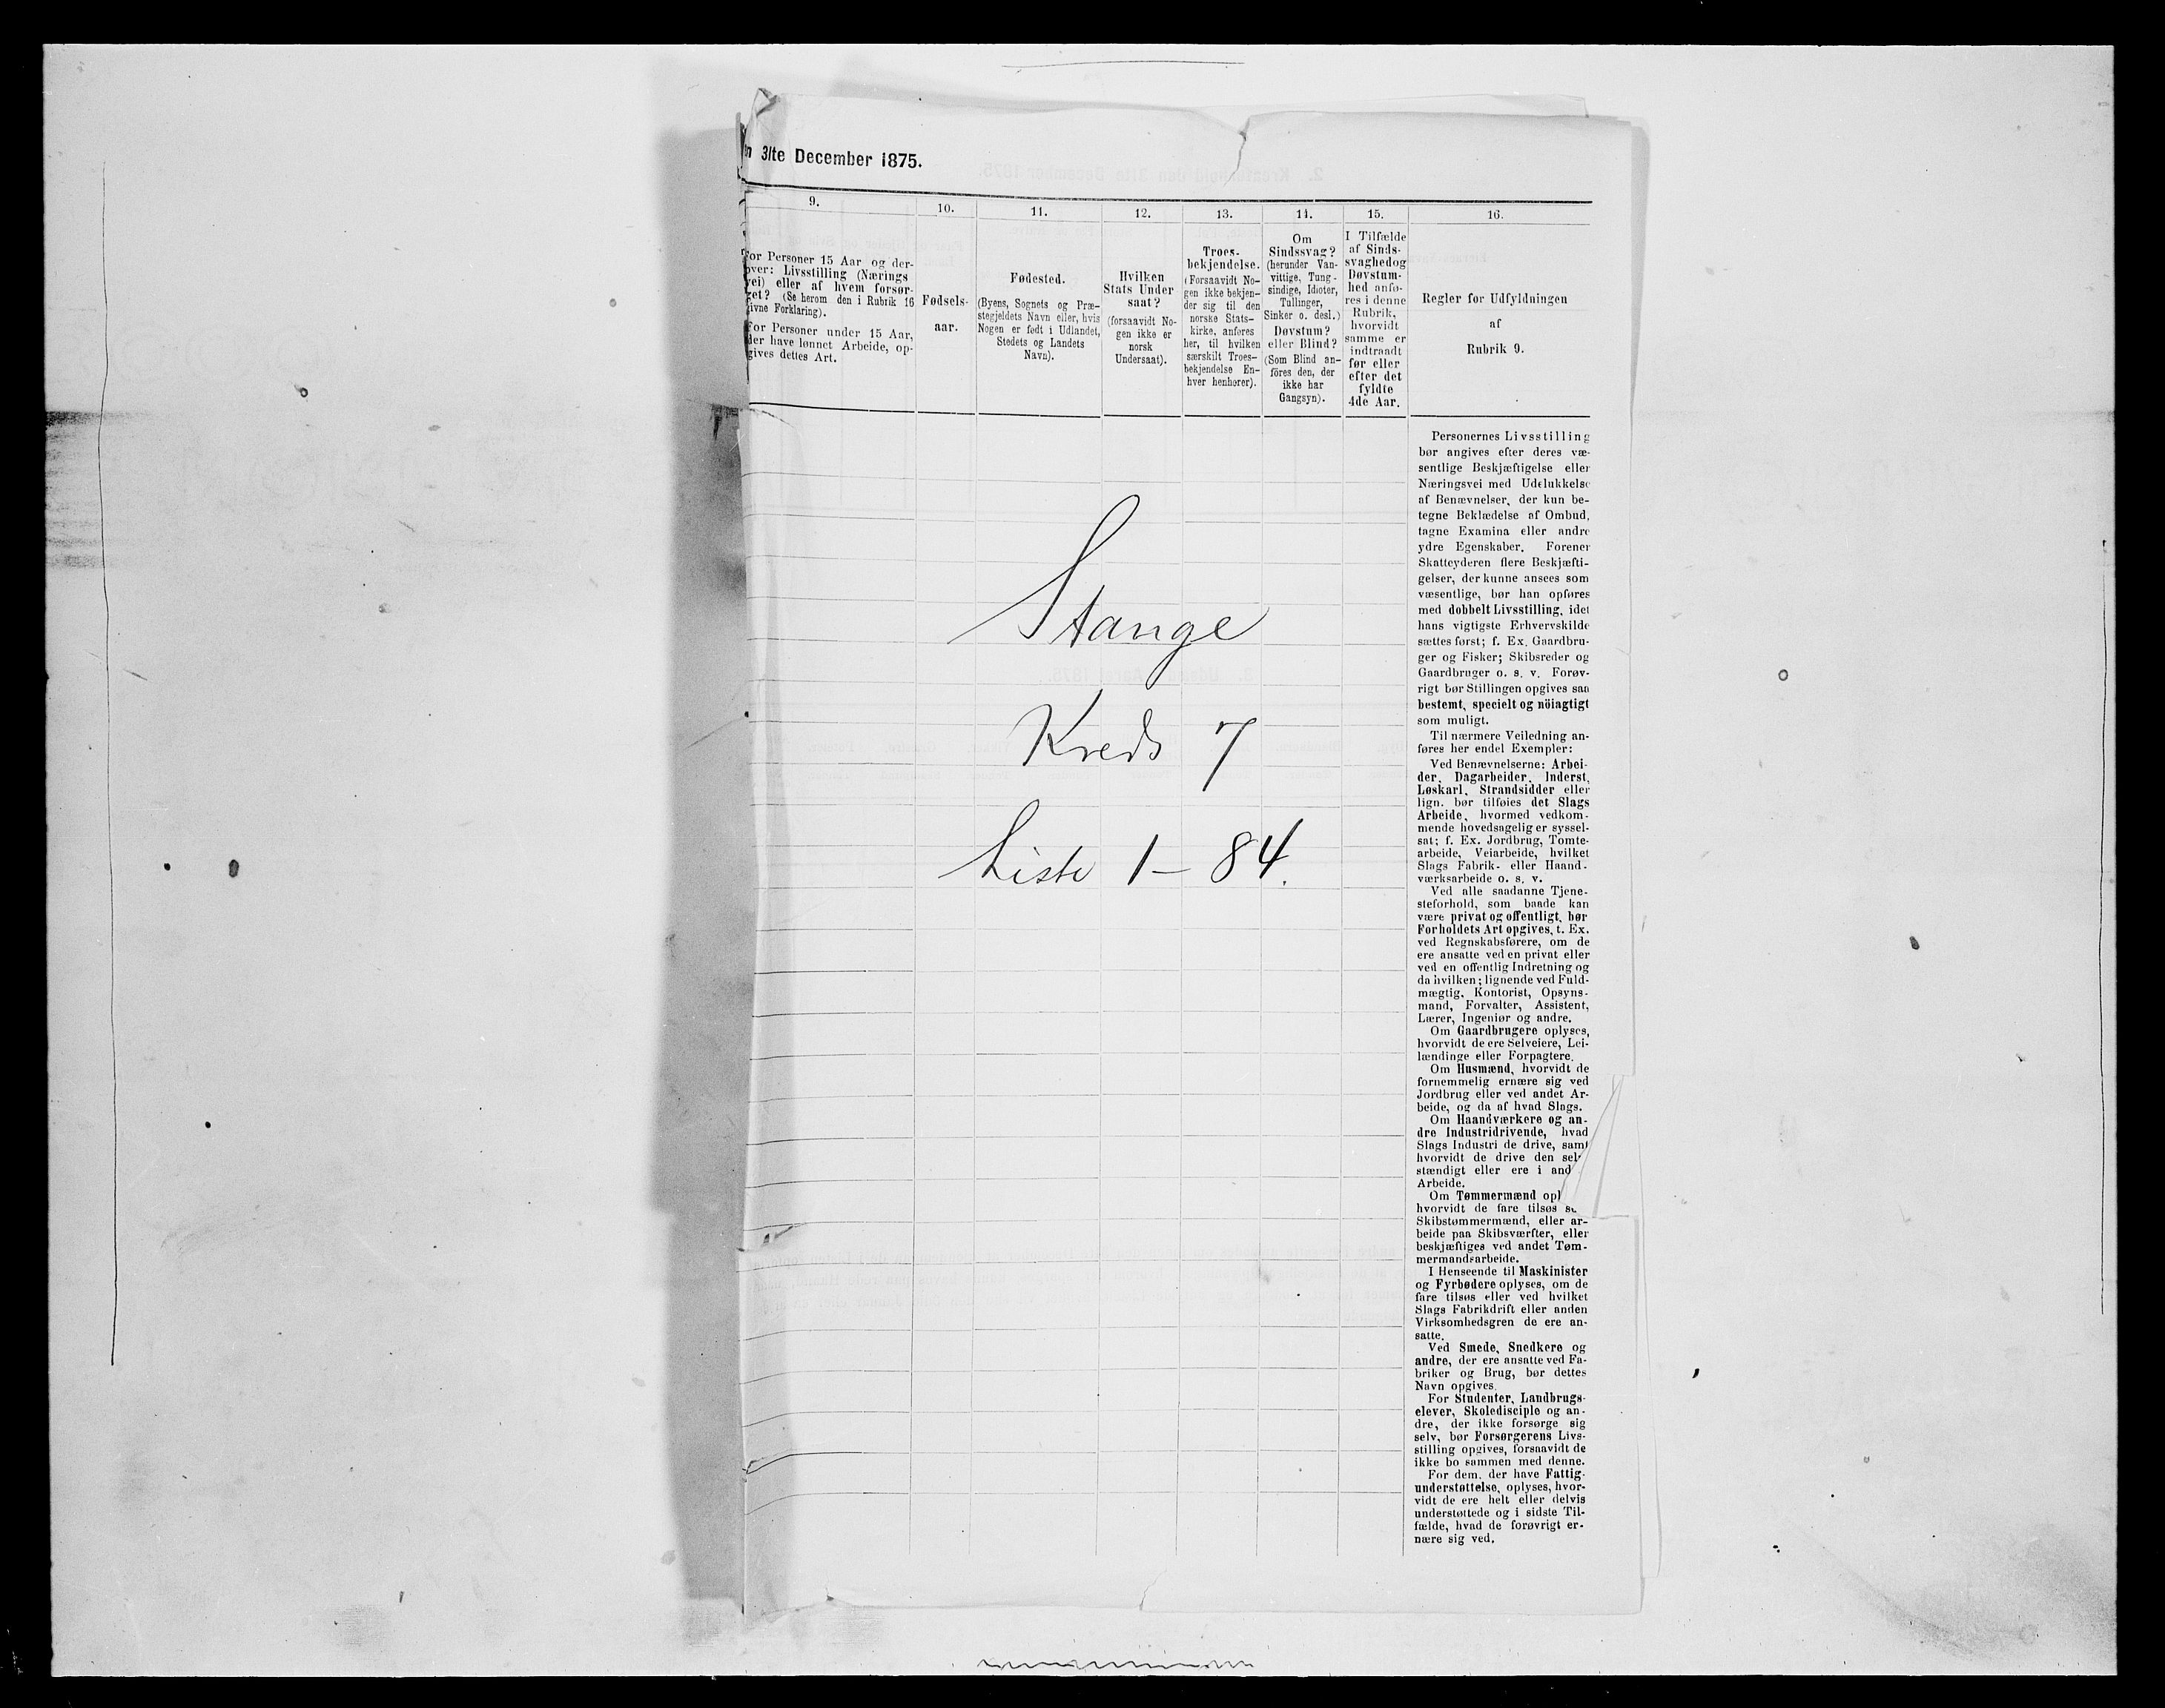 31te December 1875.
9.
For Personer 15 Aar og der-
over: Livsstilling (Nærings
vei) eller af hvem forsør-
get? (Se herom den i Rubrik 16
givne Forklaring).
For Personer under 15 Aar,
der have lønnet Arbeide, op-
gives dettes Art.
10.
Fødsels-
aar.
11.
Fødested.
(Byens, Sognets og Præ-
stegjeldets Navn eller, hvis
Nogen er født i Udlandet,
Stedets og Landets
Navn).
12.
Hvilken
Stats Under
saat?
(forsaavidt No-
gen ikke er
norsk
Undersaat).
13.
Troes-
bekjendelse.
(Forsaavidt No-
gen ikke bekjen-
der sig til den
norske Stats-
kirke, anføres
her, til hvilken
særskilt Troes-
bekjendelse En-
hver henhører).
14.
Om
Sindssvag?
(herunder Van-
vittige, Tung-
sindige, Idioter,
Tullinger,
Sinker o. desl.)
Døvstum?
eller Blind?
(Som Blind an-
föres den, der
ikke har
Gangsyn).
15.
I Tilfælde
af Sinds-
svaghed og
Døvstum-
hed anfø-
res i denne
Rubrik,
hvorvidt
samme er
indtraadt
før eller
efter det
fyldte
4de Aar.
16.
Regler for Udfyldningen
af
Rubrik 9.
Stange
Kreds 7
Liste 1-84.
Personernes Livsstilling
bør angives efter deres væ-
sentlige Beskjæftigelse eller
Næringsvei med Udelukkelse
af Benævnelser, der kun be-
tegne Beklædelse af Ombud,
tagne Examina eller andre
ydre Egenskaber. Forener
Skatteyderen flere Beskjæfti-
gelser, der kunne ansees som
væsentlige, bør han opføres
med dobbelt Livsstilling, idet
hans vigtigste Erhvervskilde
sættes først; f. Ex. Gaardbru-
ger og Fisker; Skibsreder og
Gaardbruger o. s. v. Forøv-
rigt bør Stillingen opgives saa
bestemt, specielt og nöiagtigt
som muligt.
Til nærmere Veiledning an-
føres her endel Exempler:
Ved Benævnelserne: Arbei-
der, Dagarbeider, Inderst,
Løskarl, Strandsidder eller
lign. bør tilføies det Slags
Arbeide, hvormed vedkom-
mende hovedsagelig er syssel-
sat; f. Ex. Jordbrug, Tomte-
arbeide, Veiarbeide, hvilket
Slags Fabrik- eller Haand-
værksarbeide o. s. v.
Ved alle saadanne Tjene-
steforhold, som baade kan
være privat og offentligt, bør
Forholdets Art opgives, t. Ex.
ved Regnskabsførere, om de
ere ansatte ved en privat eller
ved en offentlig Indretning og
da hvilken; lignende ved Fuld-
mægtig, Kontorist, Opsyns-
mand, Forvalter, Assistent,
Lærer, Ingeniør og andre.
Om Gaardbrugere oplyses,
hvorvidt de ere Selveiere, Lei-
lændinge eller Forpagtere.
Om Husmænd, hvorvidt de
fornemmelig ernære sig ved
Jordbrug eller ved andet Ar-
beide, og da af hvad Slags.
Om Haandværkere og an-
dre Industridrivende, hvad
Slags Industri de drive, samt
hvorvidt de drive den sel
stændigt eller ere i and
Arbeide.
Om Tømmermænd opl
hvorvidt de fare tilsøs s
Skibstømmermænd, eller ar-
beide paa Skibsværfter, eller
beskjæftiges ved andet Tøm-
mermandsarbeide.
I Henseende til Maskinister
og Fyrbødere oplyses, om de
fare tilsøs eller ved hvilket
Slags Fabrikdrift eller anden
Virksomhedsgren de ere an-
satte.
Ved Smede, Snedkere og
andre, der ere ansatte ved Fa-
briker og Brug, bør dettes
Navn opgives.
For Studenter, Landbrugs-
elever, Skoledisciple og an-
dre, der ikke forsørge sig
selv, bør Forsørgerens Livs-
stilling opgives, forsaavidt de
ikke bo sammen med denne.
For dem, der have Fattig-
understøttelse, oplyses, hvor-
vidt de ere helt eller delvis
understøttede og i sidste Til-
fælde, hvad de forøvrigt er-
nære sig ved.